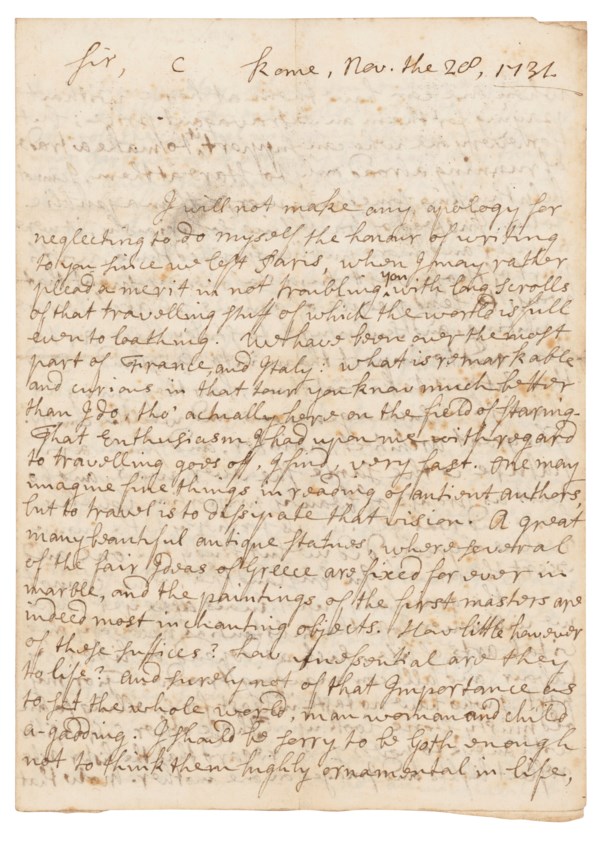 Sir, C Rome, Nov. the 28, 1731.
I will not make any apology for
neglecting to do myself the honour of writing
to you since we left Paris, when I may rather
plead a merit in not troubling you with long scrolls
of that travelling stuff of which the world is full
even to loathing. We have been over the most
part of France and Italy: what is remarkable
and curious in that tour you know much better
than I do, tho' actually here on the field of staring.
That Enthusiasm I had upon me with regard
to travelling goes off, I find, very fast. One may
imagine fine things in reading of antient authors,
but to travel is to dissipate that vision. A great
many beautiful antique statues, where several
of the fair Ideas of Greece are fixed for ever in
marble, and the paintings of the first masters are
indeed most inchanting objects. How little however
of these suffices? how unessential are they
to life? and surely not of that Importance as
to set the whole world, man woman and child
a-gadding. I should be sorry to be Goth enough
not to think them highly ornamental in life,